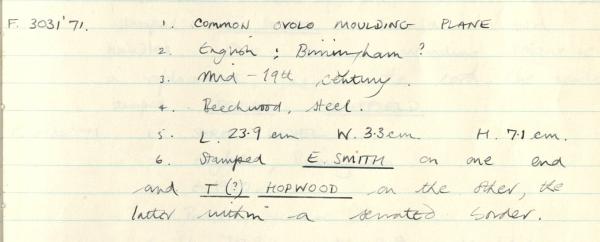 F. 3031'71. 1. COMMON OVOLO MOULDING PLANE
2. English ; Birmingham ?
3. Mid - 19th century.
4. Beechwood, steel.
5. L. 23.9 cm W. 3.3 cm. H. 7.1 cm.
6. Stamped E. SMITH on one end
and T (?) HOPWOOD on the other, the
latter within a serrated border.